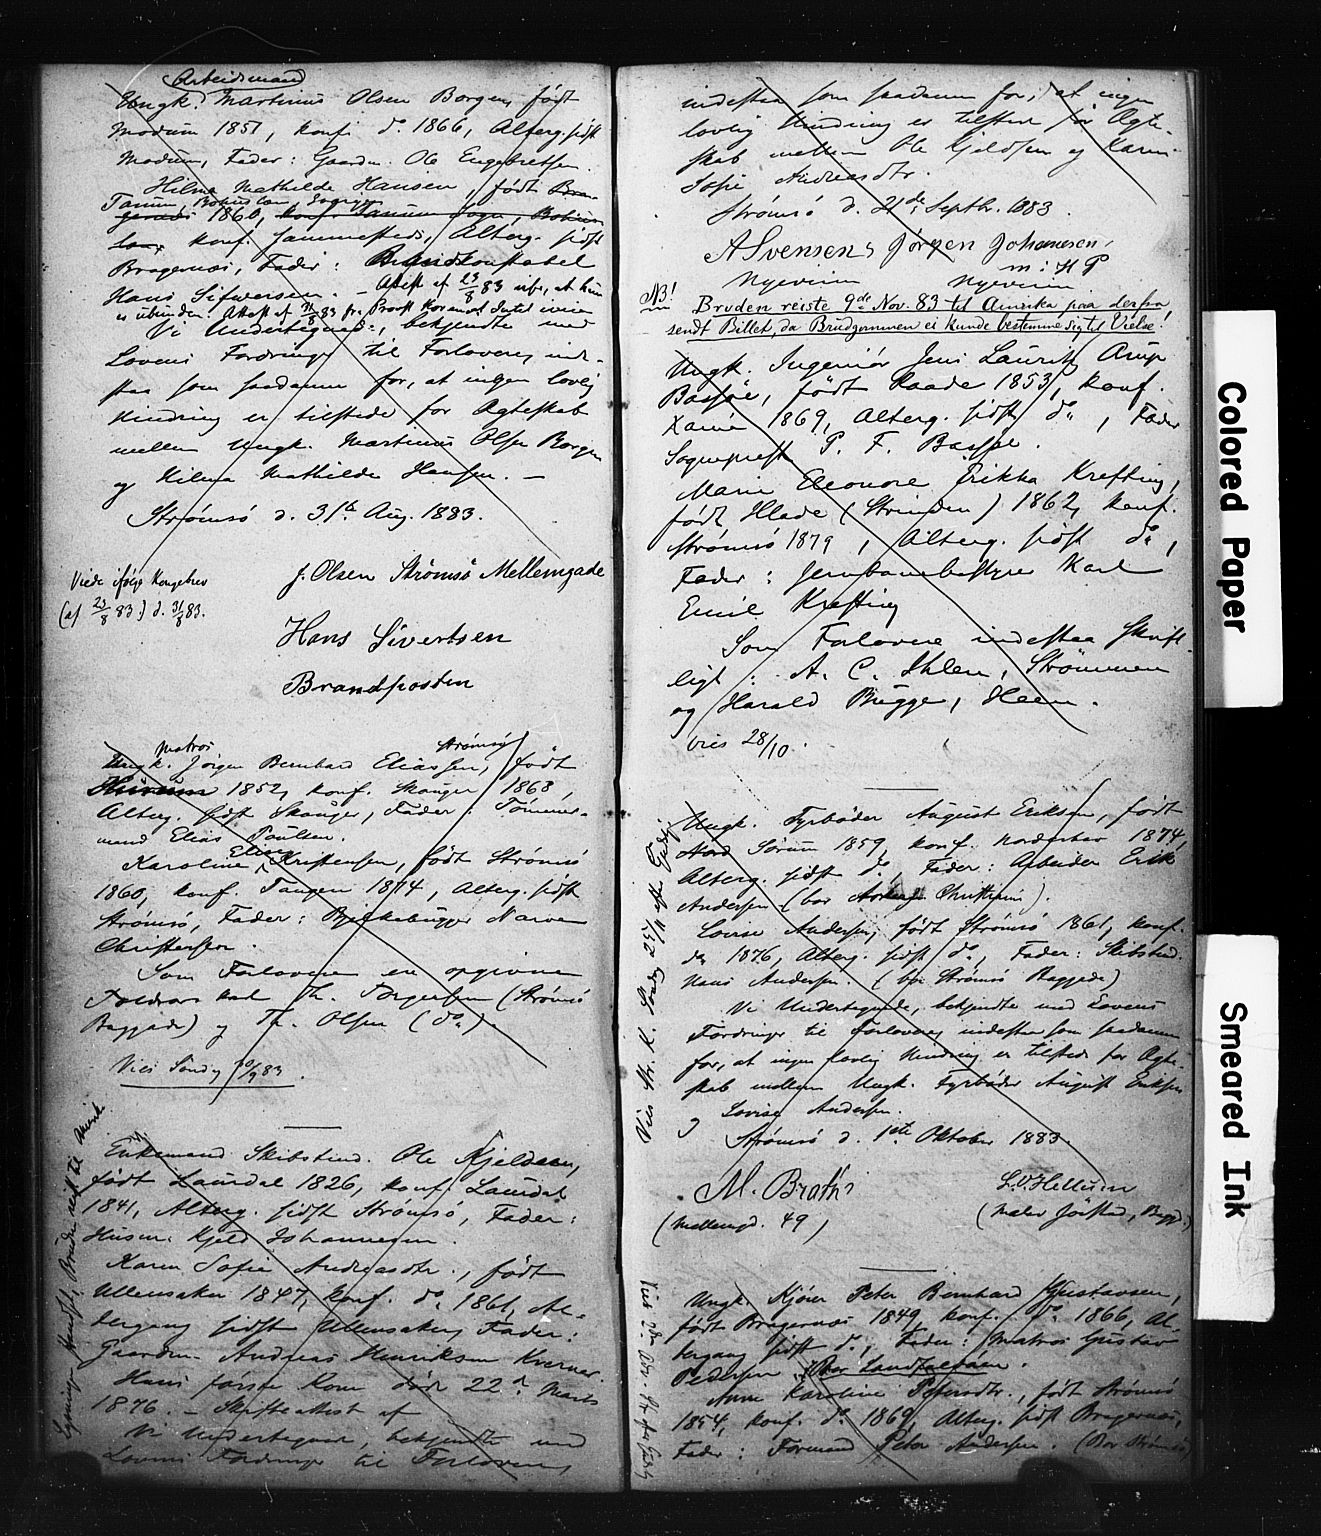 Arbeidsmand
Ungk. Martinius Olsen Borgen, født
Modum 1851, konf. do. 1866, Alterg. sidst
Modum, Fader: Gaardm. Ole Engebretsen.
Hilma Mathilde Hansen, født Bra-
Tanum, Bohuslen, Sverige
gernæs 1860, konf. Tanum Sogn, Bohus-
len, konf. sammesteds, Alterg. sidst
Bragernæs, Fader: Brandkonstabel
Hans Sifwersen. – Attest af 23/8 83 udv., at hun
er ubunden. Attest af 31/8 83 fra Provst
Vi Undertegnede, bekjendte med
Lovens Fordringer til Forlovere, inde-
staa som saadanne for, at ingen lovlig
Hindring er tilstede for Ægteskab
mellem Ungk. Martinius Olsen Borgen
og Hilma Mathilde Hansen. –
Strømsø d. 31te Aug. 1883.
Viede ifølge Kongebrev
(af 23/8 83.) d. 31/8 83.
J. Olsen Strømsø Mellemgade
Hans Sivertsen
Brandposten
Matros Strømsø
Ungk. Jørgen Bernhard Eliassen, født
Hurum 1852, konf. Skauger 1868,
Alterg. sidst Skauger, Fader: Tømmer-
mand Elias Paulsen.
Eline
Karoline Kristensen, født Strømsø
1860, konf. Tangen 1874, Alterg. sidst
Strømsø, Fader: Narve
Christensen.
Som Forlovere er opgivne
Th. Torgersen (Strømsø
Baggade) og Th. Olsen (do.).
Viet Søndag 30/9 83.
Enkemand Skibstmd. Ole Kjeldsen,
født Laurdal 1826, konf. Laurdal
1841, Alterg. sidst Strømsø, Fader:
Husm. Kjeld Johannesen.
Karen Sofie Andreasdtr., født
Ullensaker 1847, konf. do. 1861, Al-
tergang sidst Ullensaker, Fader:
Gaardm. Andreas Henriksen Kverner.
Hans første Kone døde 22d. Marts
1876. – Skifteattest af
Vi Undertegnede, bekjendte med
Lovens Fordringer til Forlovere,
indestaa som saadanne for, at ingen
lovlig Hindring er tilstede for Ægte-
skab mellem Ole Kjeldsen og Karen
Sofie Andreasdtr.
Strømsø d. 21de Septbr. 1883.
A Svensen, Jørgen Johannesen,
m: H P
Nyeveien Nyeveien
NB! Bruden reiste 9de Nov. 83 til Amerika paa derfra
sendt Billet, da Brudgommen ei kunde bestemme sig til Vielse.
Ungk. Ingeniør Jens Lauritz Arup
Bassøe, født Raade 1853, konf.
1869, Alterg. sidst do., Fader
Sogneprest P. F. Bassøe.
Marie Eleonore Erikka Krefting,
født Hlade (Strinden) 1862, konf.
Strømsø 1879, Alterg. sidst do.,
Fader: Jernbanebestyrer Karl
Emil Krefting
Som Forlovere indestaa skrift-
ligt: A. C. Ihlen, Strømmen
og Harald Bugge, Heen.
Viet 28/10.
Ungk. Fyrbøder August Eriksen, født
Nord Sørum 1859, konf. 1874,
Alterg. sidst do. Fader: Arbeider Erik
Andersen (bor Christiania).
Lovise Andersen, født Strømsø 1861, konf.
do 1876, Alterg. sidst do., Fader: Skibstmd.
Hans Andersen. (bor Strømsø Baggade)
Vi Undertegnede, bekjendte med Lovens
Fordringer til Forlovere, indestaa som saadanne
for, at ingen lovlig Hindring er tilstede for Ægte-
skab mellem Ungk. Fyrbøder August Eriksen
og Lovise Andersen.
Strømsø d. 1ste Oktober 1883.
M. Brath,
(Mellemgd. 49)
L. O. Hellum
(Maler Bagg.)
Ungk. Kjører Peter Bernhard Gustavsen,
født Bragernæs 1849, konf. do. 1866, Al-
tergang sidst do., Fader: Matros Gustav
Pedersen. Bor Landfaldøen.
Anne Karoline Petersdtr., født Strømsø
1854, konf. do. 1869, Alterg. sidst Bragernæs,
Fader: Formand Peter Andersen. (Bor Strømsø)
Colored Paper
Smeared Ink